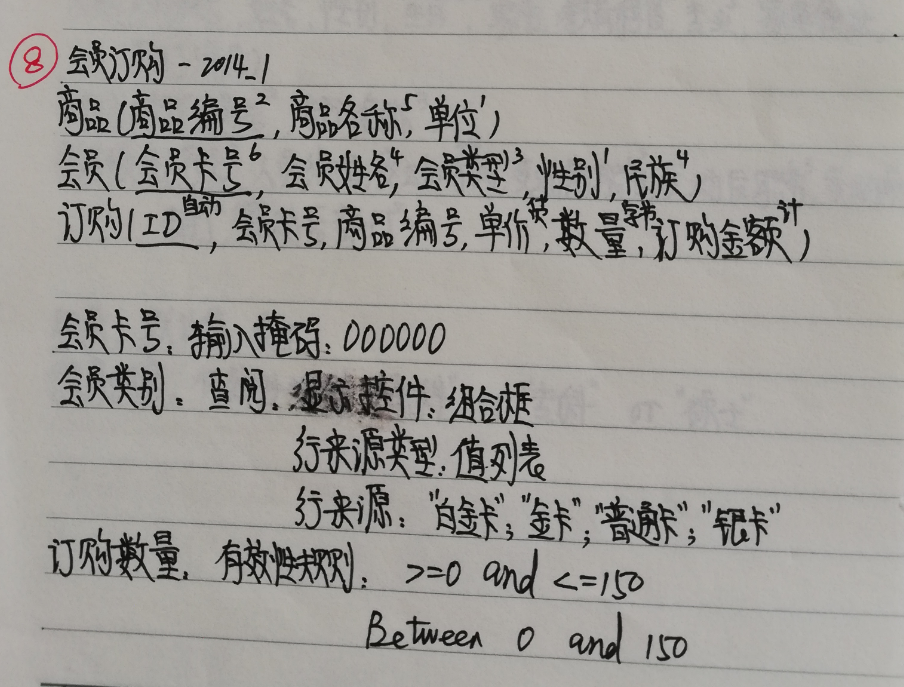 ⑧ 会员订购 - 2014_1
商品(商品编号2, 商品名称5, 单位1)
会员(会员卡号6, 会员姓名4, 会员类型3, 性别1, 民族4)
订购(ID自动, 会员卡号, 商品编号, 单价货, 数量字节, 订购金额计)
会员卡号: 输入掩码: 000000
会员类别: 查阅: 显示控件: 组合框
行来源类型: 值列表
行来源: "白金卡"; "金卡"; "普通卡"; "银卡"
订购数量: 有效性规则: >=0 and <=150
Between 0 and 150